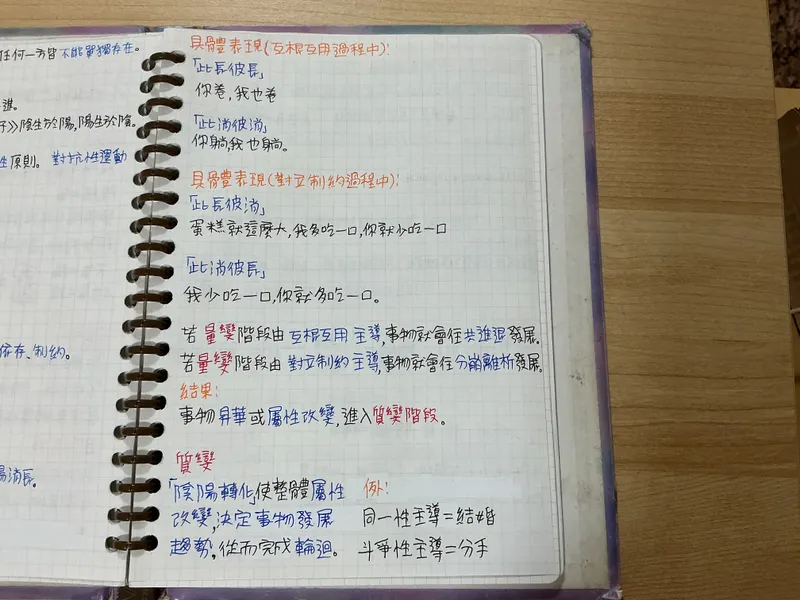 任何一方皆不能單獨存在。
進。
》陰生於陽,陽生於陰。
性原則。對抗性運動
依存、制約。
陽消長。
具體表現(互根互用過程中):
「此長彼長」
你卷,我也卷
「此消彼消」
你躺,我也躺。
具體表現(對立制約過程中):
「此長彼消」
蛋糕就這麼大,我多吃一口,你就少吃一口
「此消彼長」
我少吃一口,你就多吃一口。
若量變階段由互根互用主導,事物就會往共進退發展.
若量變階段由對立制約主導,事物就會往分崩離析發展.
結果:
事物昇華或屬性改變,進入質變階段。
質變
「陰陽轉化」使整體屬性
改變,決定事物發展
趨勢,從而完成輪迴。
例:
同一性主導=結婚
斗爭性主導=分手